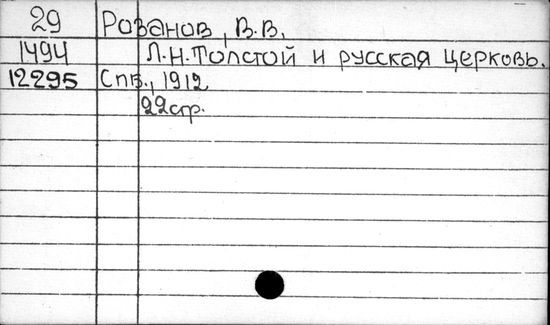 29 Розанов, В.В.
1494 Л.Н.Толстой и русская церковь.
12295 Спб., 1912
22 стр.